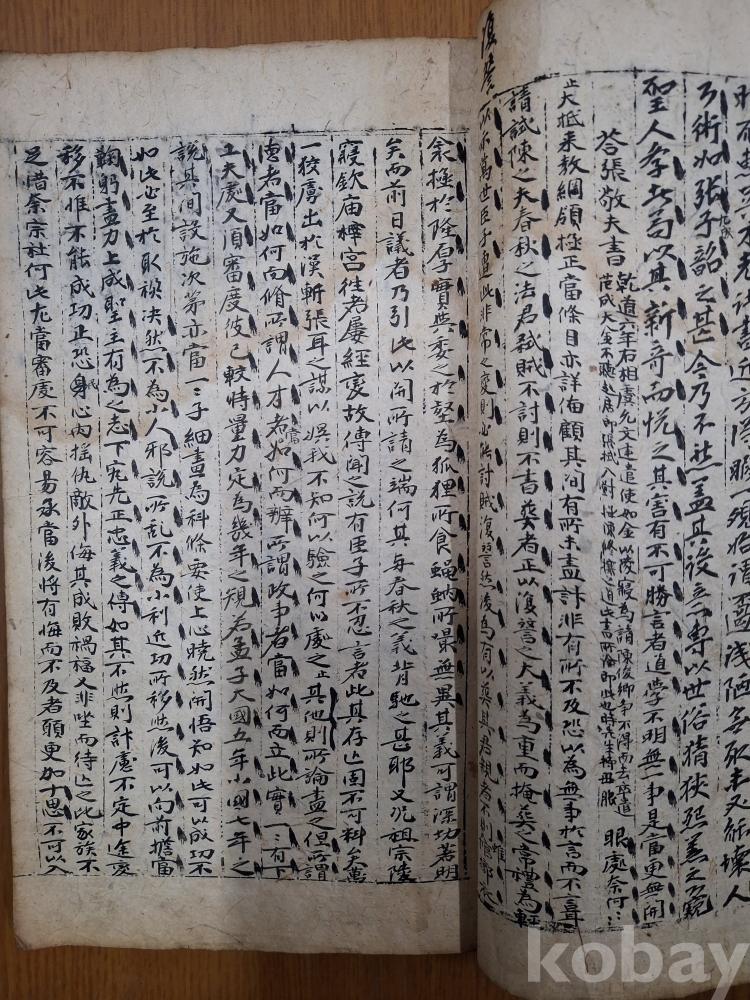 復讐
弓術如張子韶之甚今乃不然蓋其後立一專以世俗猜狹怨羞之窺
聖人孝此苟以其新奇而悅之其害有不可勝言者道學不明無一事是當更無開
眼處奈何
荅張敬夫書 乾道六年右相虞允文建遣使如金以陵寢為請陳俊卿爭不得而去卒遣
范成大金不聽
正大抵來敎綱領極正當條目亦詳備顧其間有所未盡計非有所不及恐以為無事於言而不言耳
請試陳之夫春秋之法君弑賊不討則不書葬者正以復讐之大義為重而掩葬之常禮為輕
以示萬世臣子遭此非常之變則必能討賊復讐然後為有以葬其君親者不則雖
衾極於隆厚實與委之於壑為狐狸所食蝇蚋所嘬無異其義可謂深切著明
矣而前日議者乃引此以開祈請之端何其與春秋之義背馳之甚耶又况祖宗陵
寢欽廟梓宮往者屢經變故傳聞之說有臣子所不忍言者此其存亡固不可料矣萬
一狡虜出於漢斬張耳之謀以誤我不知何以驗之何以處之止其他則所論盡之但所謂
德者當如何而脩所謂人才者當如何而辨所謂政事者當如何而立此實一一有下
工夫處又須審度彼己較時量力定為幾年之規若孟子大國五年小國七年之
說其間設施次第亦當一一子細畫為科條要使上心曉然開悟知如此可以成功不
如此必至於取禍决然不為小人邪說所亂不為小利近功所移然後可以向前擔當
鞠躬盡力上成聖主有為之志下究先正忠義之傳如其不然則計慮不定中途變
移不惟不能成功正恐身心內搖仇敵外侮其成敗禍福又非坐而待亡之比家族不
足惜奈宗社何此尤當審處不可容易承當後將有悔而不及者願更加十思不可以入
kobay